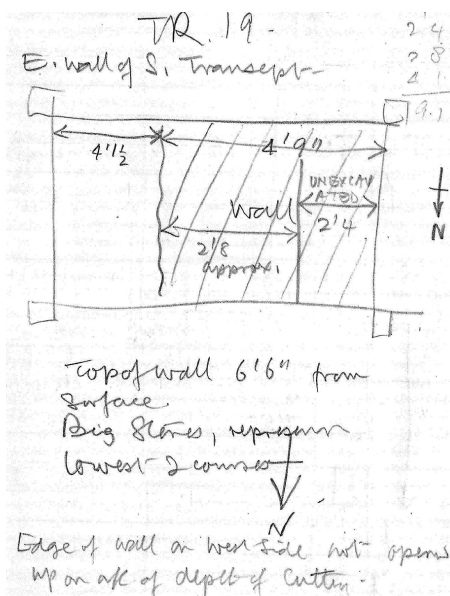 TR. 19
E. wall of S. Transept
2 4
2 8
4 1
9.1
4'1½
4'9"
UNEXCAV
ATED
Wall
2'4
2'8
approx.
N
Top of wall 6'6" from
surface
Big Stones, represen
lowest 2 courses
N
Edge of wall on west side not opened
up on a/c of depth of cutting.